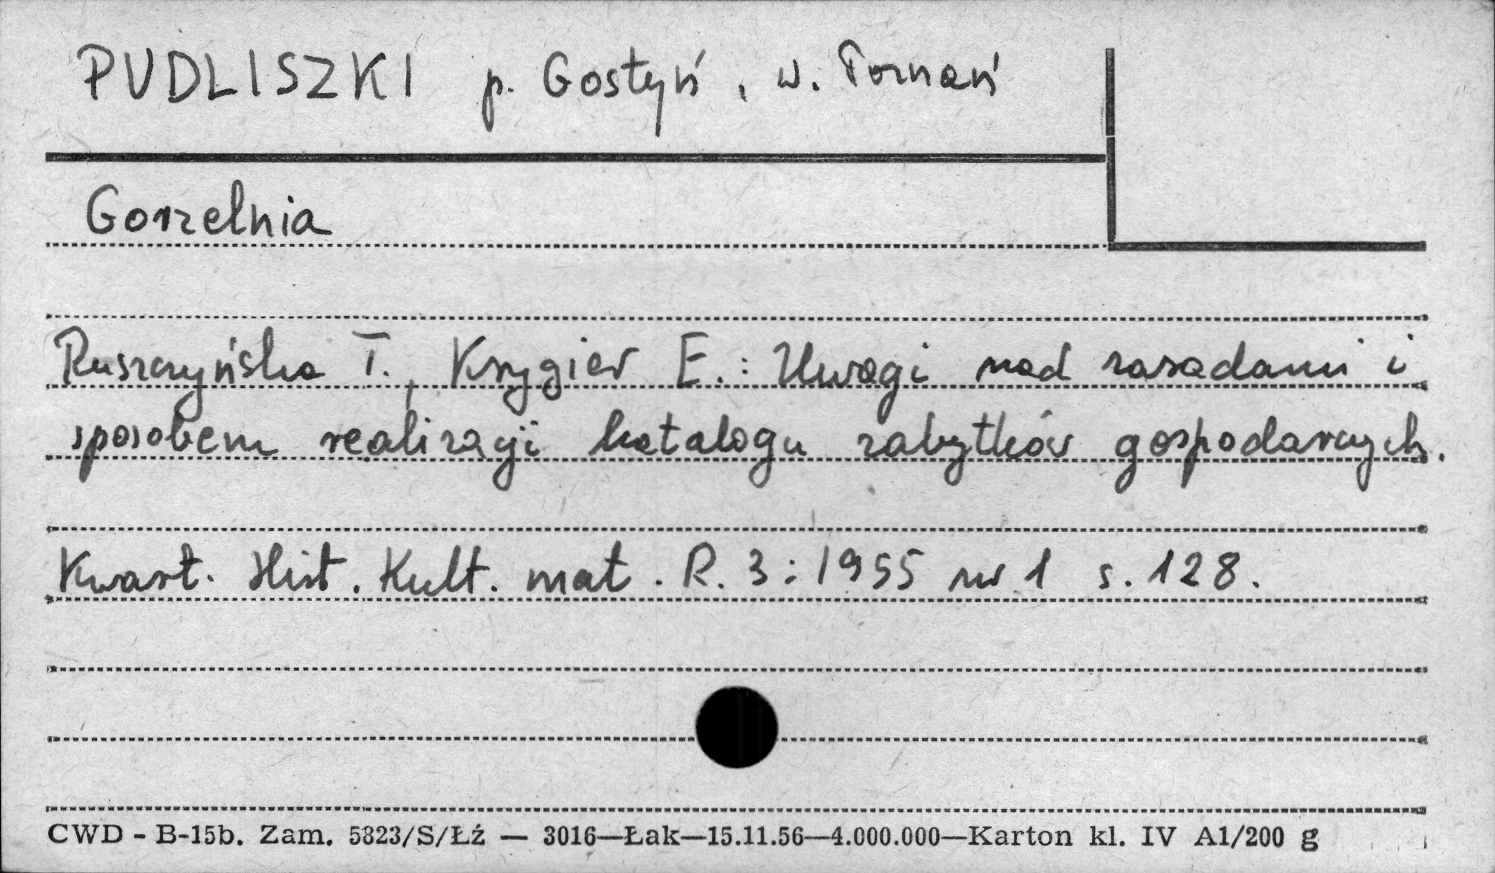 PUDLISZKI p. Gostyń, w. Poznań
Gorzelnia
Ruszczyńska T., Krygier E.: Uwagi nad zasadami i
sposobem realizacji katalogu zabytków gospodarczych.
Kwart. Hist. Kult. mat. R. 3: 1955 nr 1 s. 128.
CWD - B-15b. Zam. 5823/S/Łź — 3016—Łak—15.11.56—4.000.000—Karton kl. IV A1/200 g